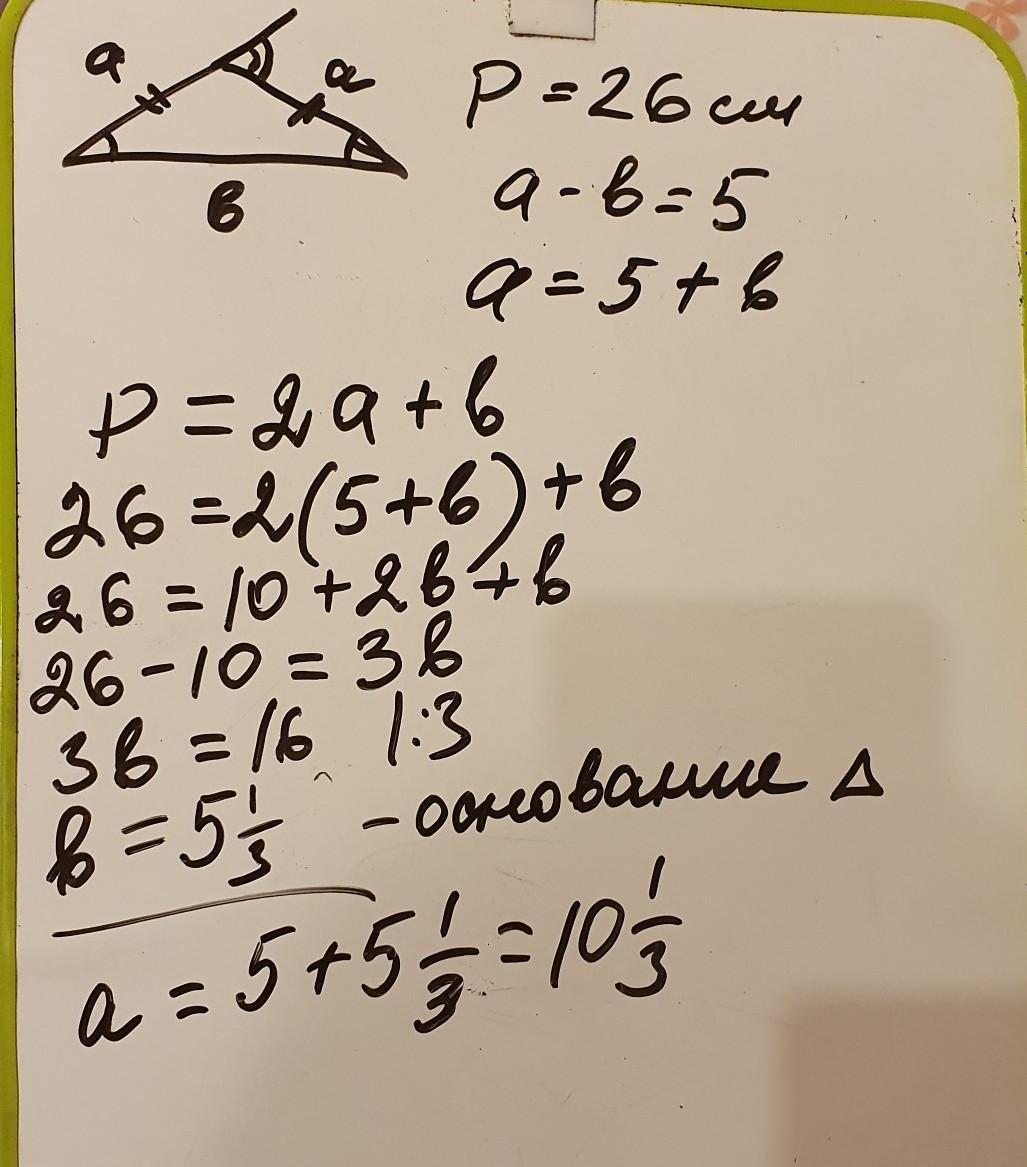 a
a
в
P = 26 см
a - в = 5
a = 5 + в
P = 2a + в
26 = 2(5+в) + в
26 = 10 + 2в + в
26 - 10 = 3в
3в = 16 |:3
в = 5 1/3 - основание Δ
a = 5 + 5 1/3 = 10 1/3